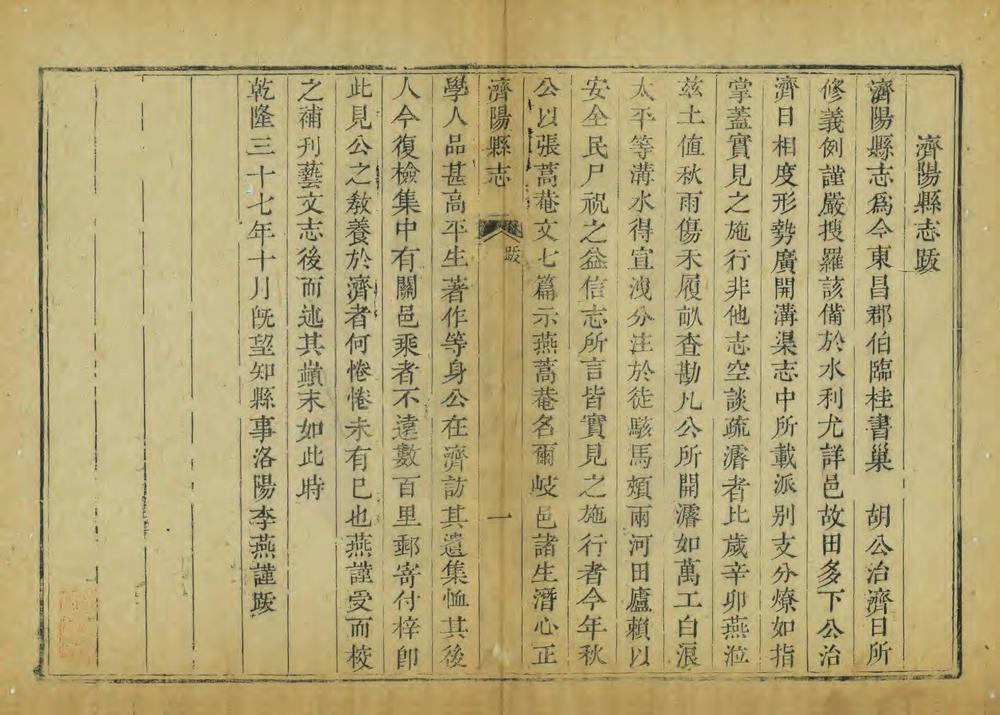 濟陽縣志跋
濟陽縣志爲今東昌郡伯臨桂書巢　胡公治濟日所
修義例謹嚴搜羅該備於水利尤詳邑故田多下公治
濟日相度形勢廣開溝渠志中所載派别支分燎如指
掌蓋實見之施行非他志空談疏濬者比歲辛卯燕涖
兹土值秋雨傷禾履畝查勘凡公所開濬如萬工白浪
太平等溝水得宣洩分注於徒駭馬頰兩河田廬賴以
安全民尸祝之益信志所言皆實見之施行者今年秋
公以張蒿菴文七篇示燕蒿菴名爾岐邑諸生潛心正
濟陽縣志
跋
一
學人品甚高平生著作等身公在濟訪其遺集恤其後
人今復檢集中有關邑乘者不遠數百里郵寄付梓卽
此見公之教養於濟者何惓惓未有已也燕謹受而校
之補刊藝文志後而述其巔末如此時
乾隆三十七年十月旣望知縣事洛陽李燕謹跋